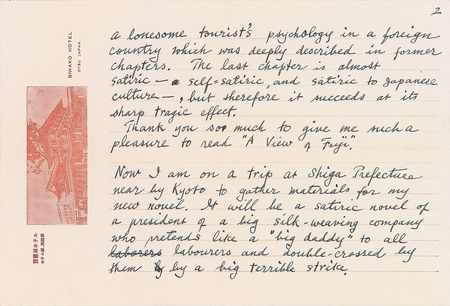 2
a lonesome tourist's psychology in a foreign
country which was deeply described in former
chapters. The last chapter is almost
satiric — a self=satiric, and satiric to Japanese
culture —, but therefore it succeeds at its
sharp tragic effect.
Thank you soo much to give me such a
pleasure to read "A View of Fuji".
Now I am on a trip at Shiga Prefecture
near by Kyoto to gather materials for my
new novel. It will be a satiric novel of
a president of a big silk-weaving company
who pretends like a "big daddy" to all
laborers labourers and double-crossed by
them by a big terrible strike.
BIWAKO HOTEL
OTSU JAPAN
琵琶湖ホテル